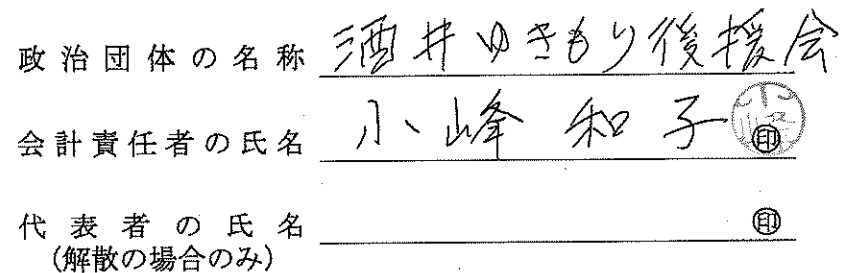 政治団体の名称 酒井ゆきもり後援会
会計責任者の氏名 小峰和子 ㊞
代表者の氏名 ㊞
(解散の場合のみ)